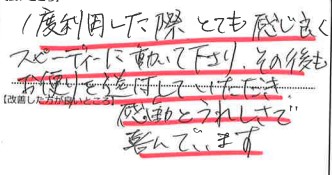 1度利用した際 とても感じ良く
スピーディーに動いて下さり、その後も
お便りを送付していただき、
【改善した方が良いところ】
感動とうれしさで
喜んでいます